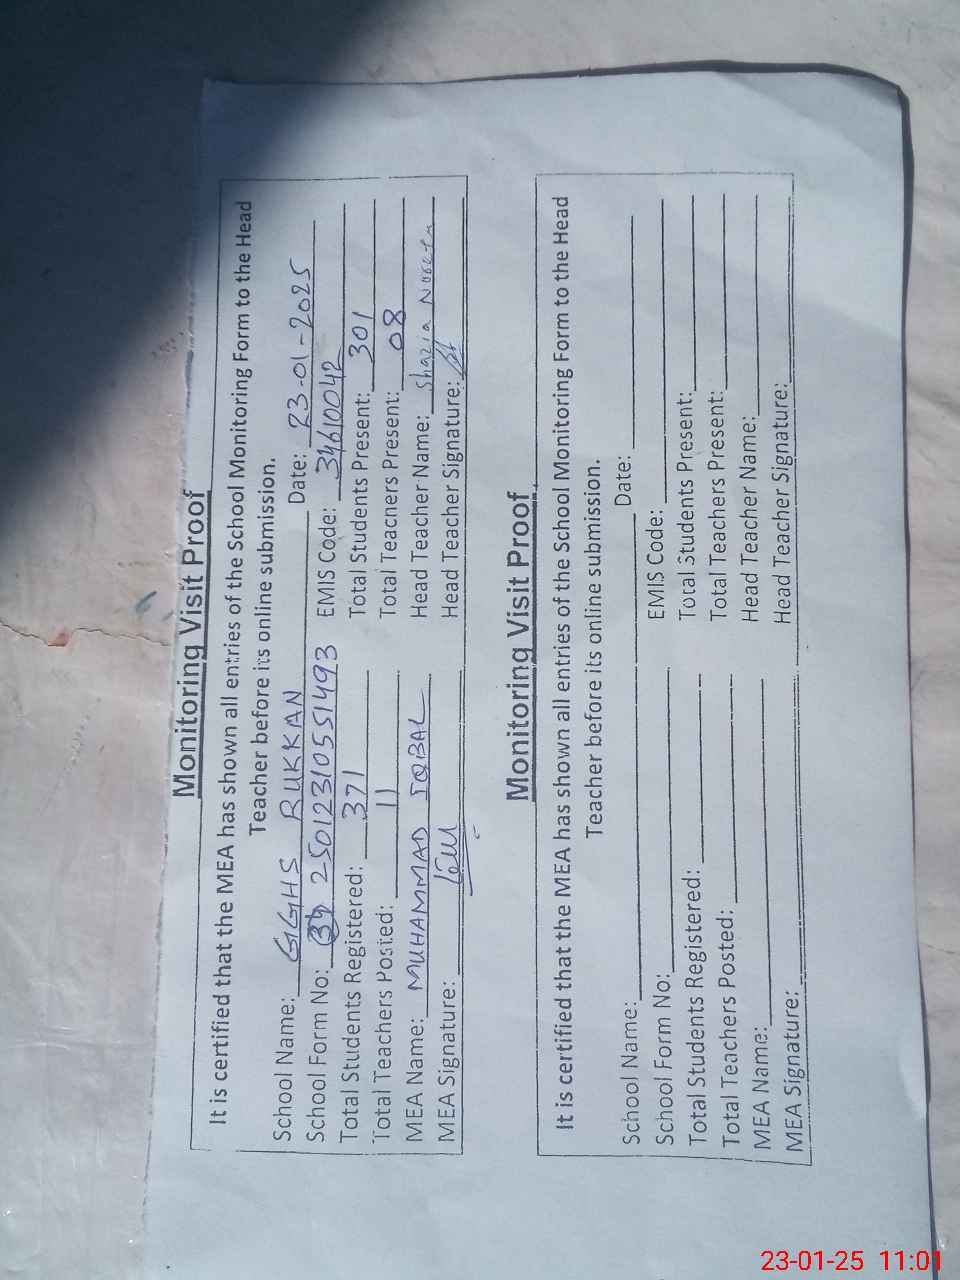 Monitoring Visit Proof
It is certified that the MEA has shown all entries of the School Monitoring Form to the Head
Teacher before its online submission.
School Name: GGHS RUKKAN Date: 23-01-2025
School Form No: 39 2501231055 1493 EMIS Code: 34610042
Total Students Registered: 371 Total Students Present: 301
Total Teachers Posted: 11 Total Teacners Present: 08
MEA Name: MUHAMMAD IQBAL Head Teacher Name: Shazia
MEA Signature: Head Teacher Signature:
Monitoring Visit Proof
It is certified that the MEA has shown all entries of the School Monitoring Form to the Head
Teacher before its online submission.
School Name: Date:
School Form No: EMIS Code:
Total Students Registered: Total Students Present:
Total Teachers Posted: Total Teachers Present:
MEA Name: Head Teacher Name:
MEA Signature: Head Teacher Signature:
23-01-25 11:01